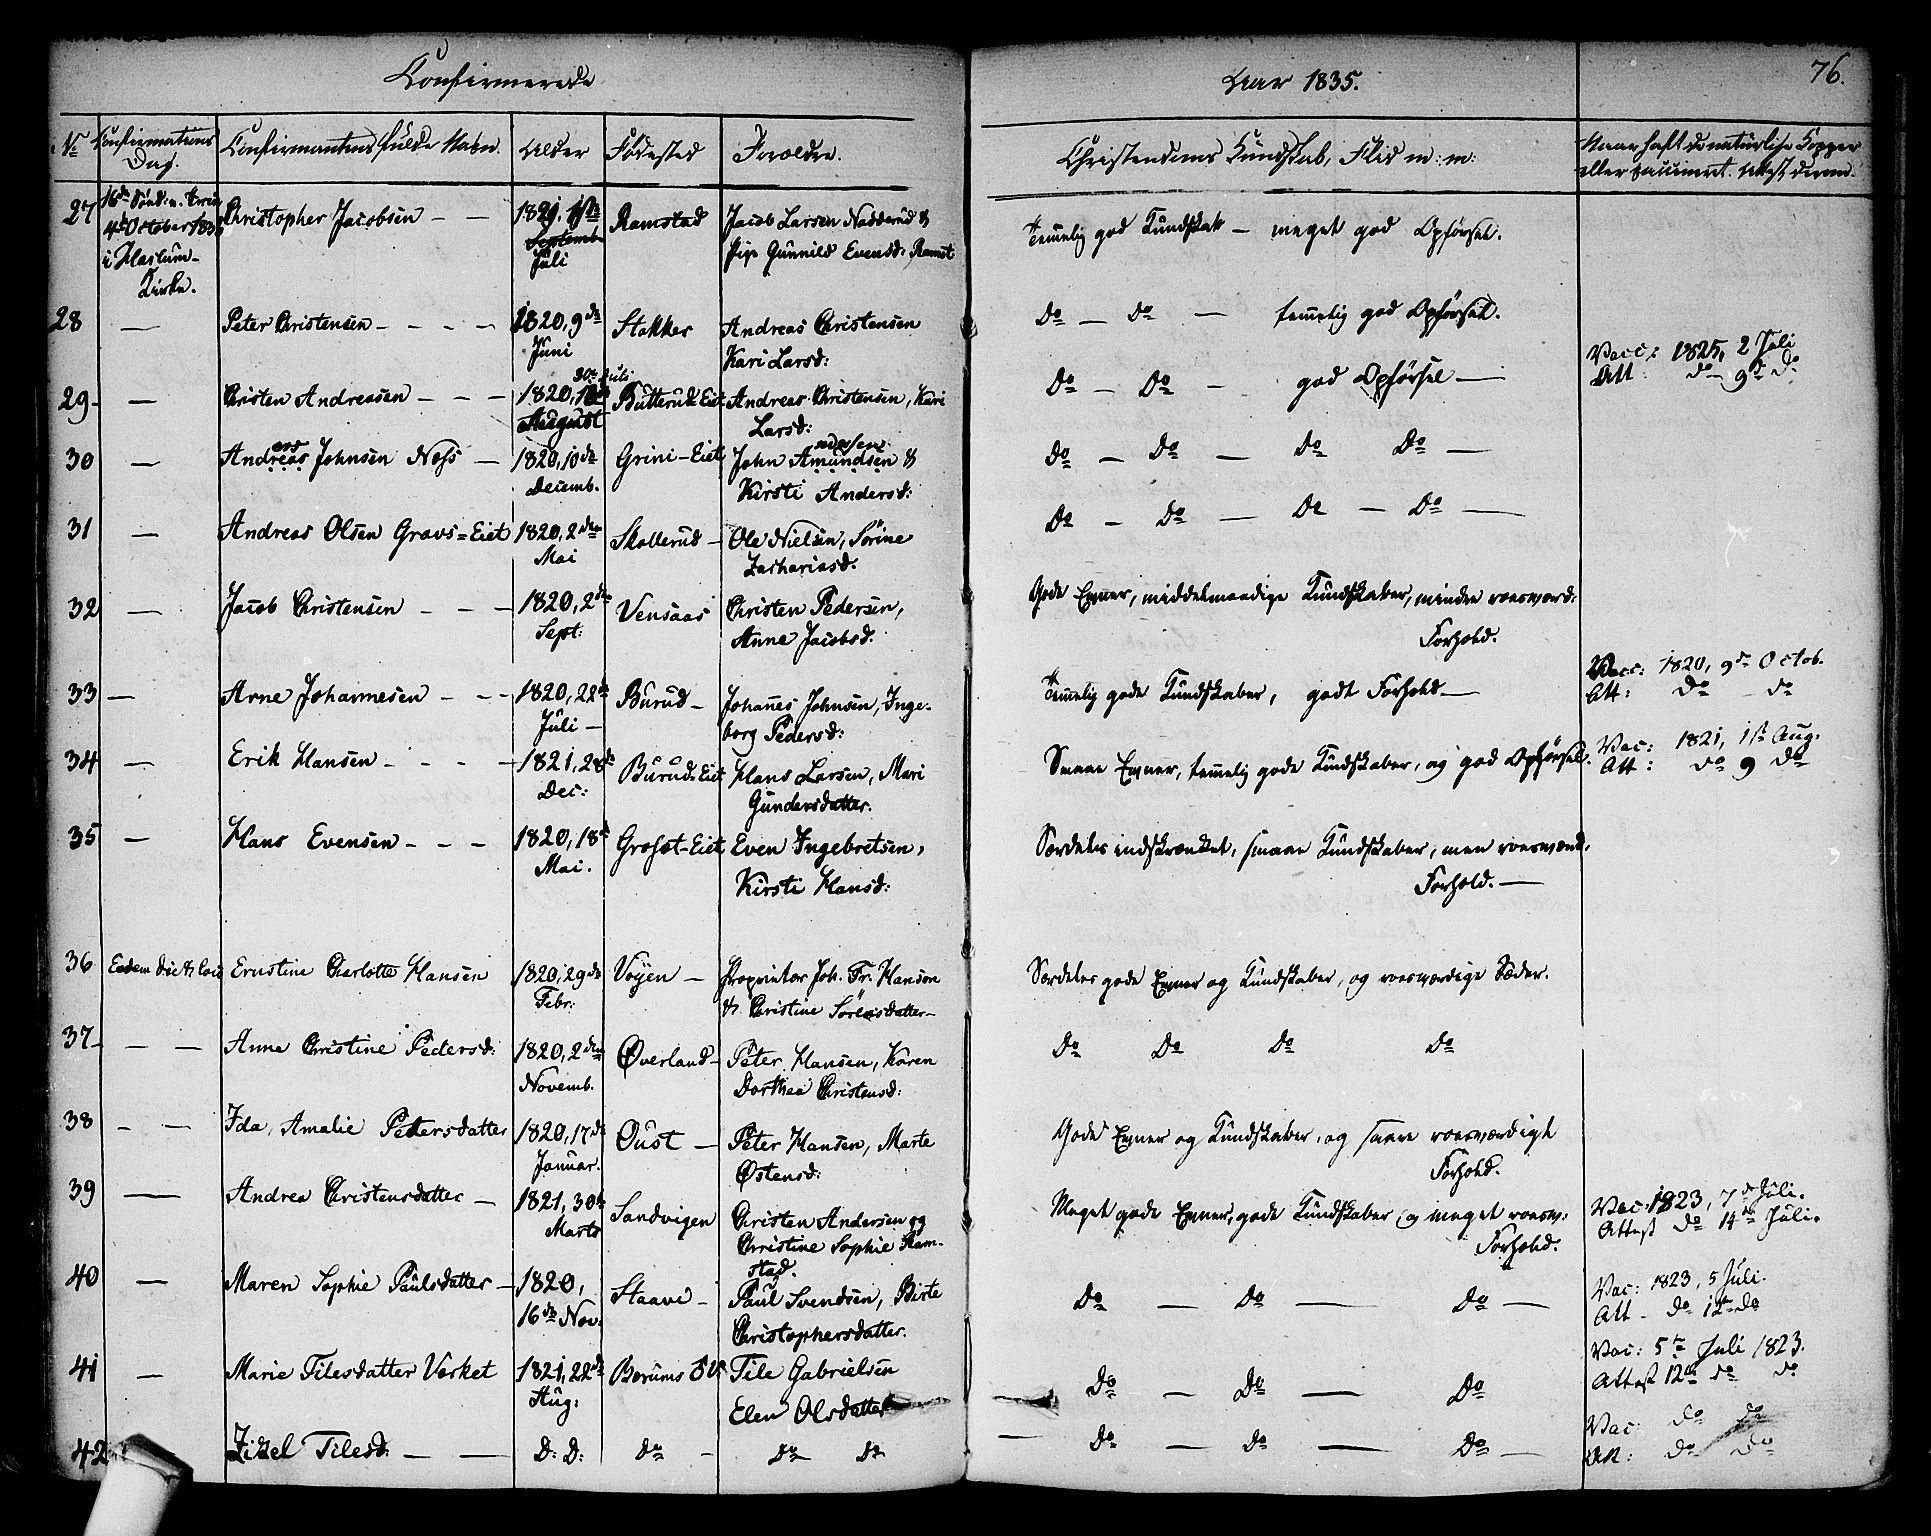 Confirmerede
Aar 1835.
76.
No
Confirmations Dag.
Confirmantens fulde Navn.
Alder
Fødested
Forældre.
Christendoms Kundskab, Flid m: m:
Naar haft de naturlige Kopper
eller vaccineret. Attest derom.
27
16de Sønd: n. Trin:
4de October 1835
i Haslum
Kirke.
Christopher Jacobsen
1821, 1ste
Septemb.
Juli
Ramstad
Jacob Larsen Nadderud &
Pige Gunnild Evensd: Ramst
Temelig god Kundskab — meget god Opførsel.
28 — Peter Christensen
1820, 9de
Juni
Stokker
Andreas Christensen
Kari Larsd:
Do — Do — temelig god Opførsel.
29 — Christen Andreasen
30te Juli
1820, 18de
August
Butterud-Eiet
Andreas Christensen, Kari
Larsd:
Do — Do — god Opførsel —
Vacc: 1825, 2 Juli
Att: do 9d do
30 — Andreas Johnsen Næs —
ers
1820, 10de
Decemb.
Grini-Eiet
John Amundsen &
Kirsti Andersd:
Do — Do — Do Do —
31 — Andreas Olsen Gravs=Eiet
1820, 2den
Mai
Skollerud —
Ole Nielsen, Sørine
Zachariasd.
Do — Do — Do — Do —
32 — Jacob Christensen
1820, 2de
Sept:
Vensaas
Christen Pedersen,
Anne Jacobsd.
Gode Evner, middelmaadige Kundskaber, mindre roesværd:
Forhold.
33 — Arne Johannesen
1820, 22de
Juli —
Burud —
Johanes Johnsen, Inge-
borg Pedersd:
Temelig gode Kundskaber, godt Forhold —
Vacc: 1820, 9de Octob.
Att: Do — do
34 — Erik Hansen
1821, 28de
Dec:
Burud=Eiet
Hans Larsen, Mari
Gundersdatter.
Smaae Evner, temelig gode Kundskaber, og god Opførsel.
Vac: 1821, 1ste Aug:
Att: do 9 do
35 — Hans Evensen
1820, 18de
Mai.
Grosset-Eiet
Even Ingebretsen,
Kirsti Hansd:
Særdeles indskrænket, smaae Kundskaber, men roesværd:
Forhold. —
36
Eodem die & loco
Ernstine Charlotte Hansen
1820, 29de
Febr:
Vøyen —
Proprietær Joh. Fr. Hansen
& Christine Sørensdatter —
Særdeles gode Evner og Kundskaber, og roesværdige Sæder.
37 — — Anne Christine Pedersd:
1820, 2den
Novemb.
Øverland —
Peter Hansen, Karen
Dorthea Christensd:
Do Do Do Do
38 — — Ida Amalie Pettersdatter
1820, 17de
Januar.
Oust —
Peter Hansen, Marte
Østensd:
Gode Evner og Kundskaber, og saare roesværdigt
Forhold.
39 — Andrea Christensdatter —
1821, 30te
Marts
Sandvigen
Christen Andersen og
Christine Sophie Ram-
stad.
Meget gode Evner, gode Kundskaber og meget roesv:
Forhold.
Vac: 1823, 7de Juli.
Attest do 14de Juli.
40 — Maren Sophie Paulsdatter —
1820,
16de Nov:
Staavi —
Paul Svendsen, Birte
Christophersdatter.
Do — Do — Do —
Vac: 1823, 5 Juli.
Att — do 12te do
41 — Marie Tilesdatter Værket
1821, 22de
Aug:
Bærums
Tile Gabrielsen
Elen Olsdatter
Do — Do — Do
Vac: 5te Juli 1823.
Attest 12te do do
42 Tilesd: — —
D: D:
do —
do do
— Do — Do — Do —
Vac: do do
Att: do do